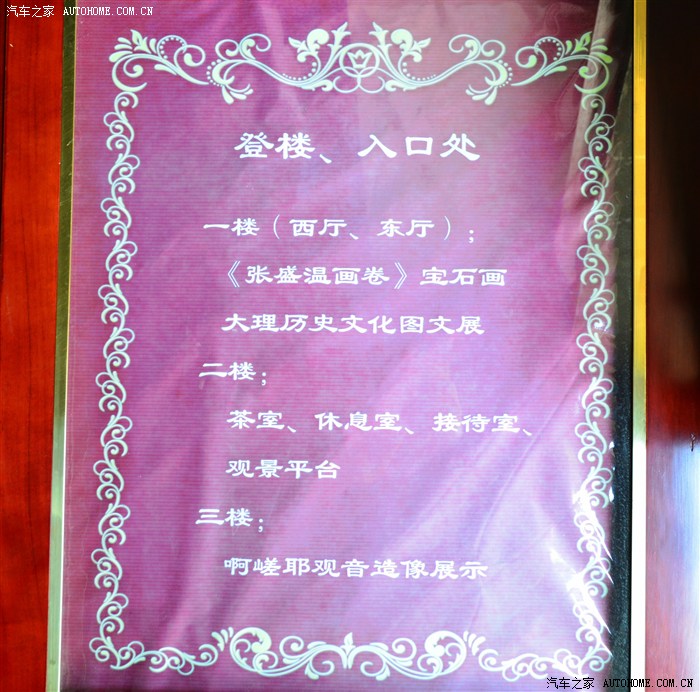 汽车之家 AUTOHOME.COM.CN
登楼、入口处
一楼（西厅、东厅）；
《张盛温画卷》宝石画
大理历史文化图文展
二楼；
茶室、休息室、接待室、
观景平台
三楼；
啊嵯耶观音造像展示
汽车之家 AUTOHOME.COM.CN